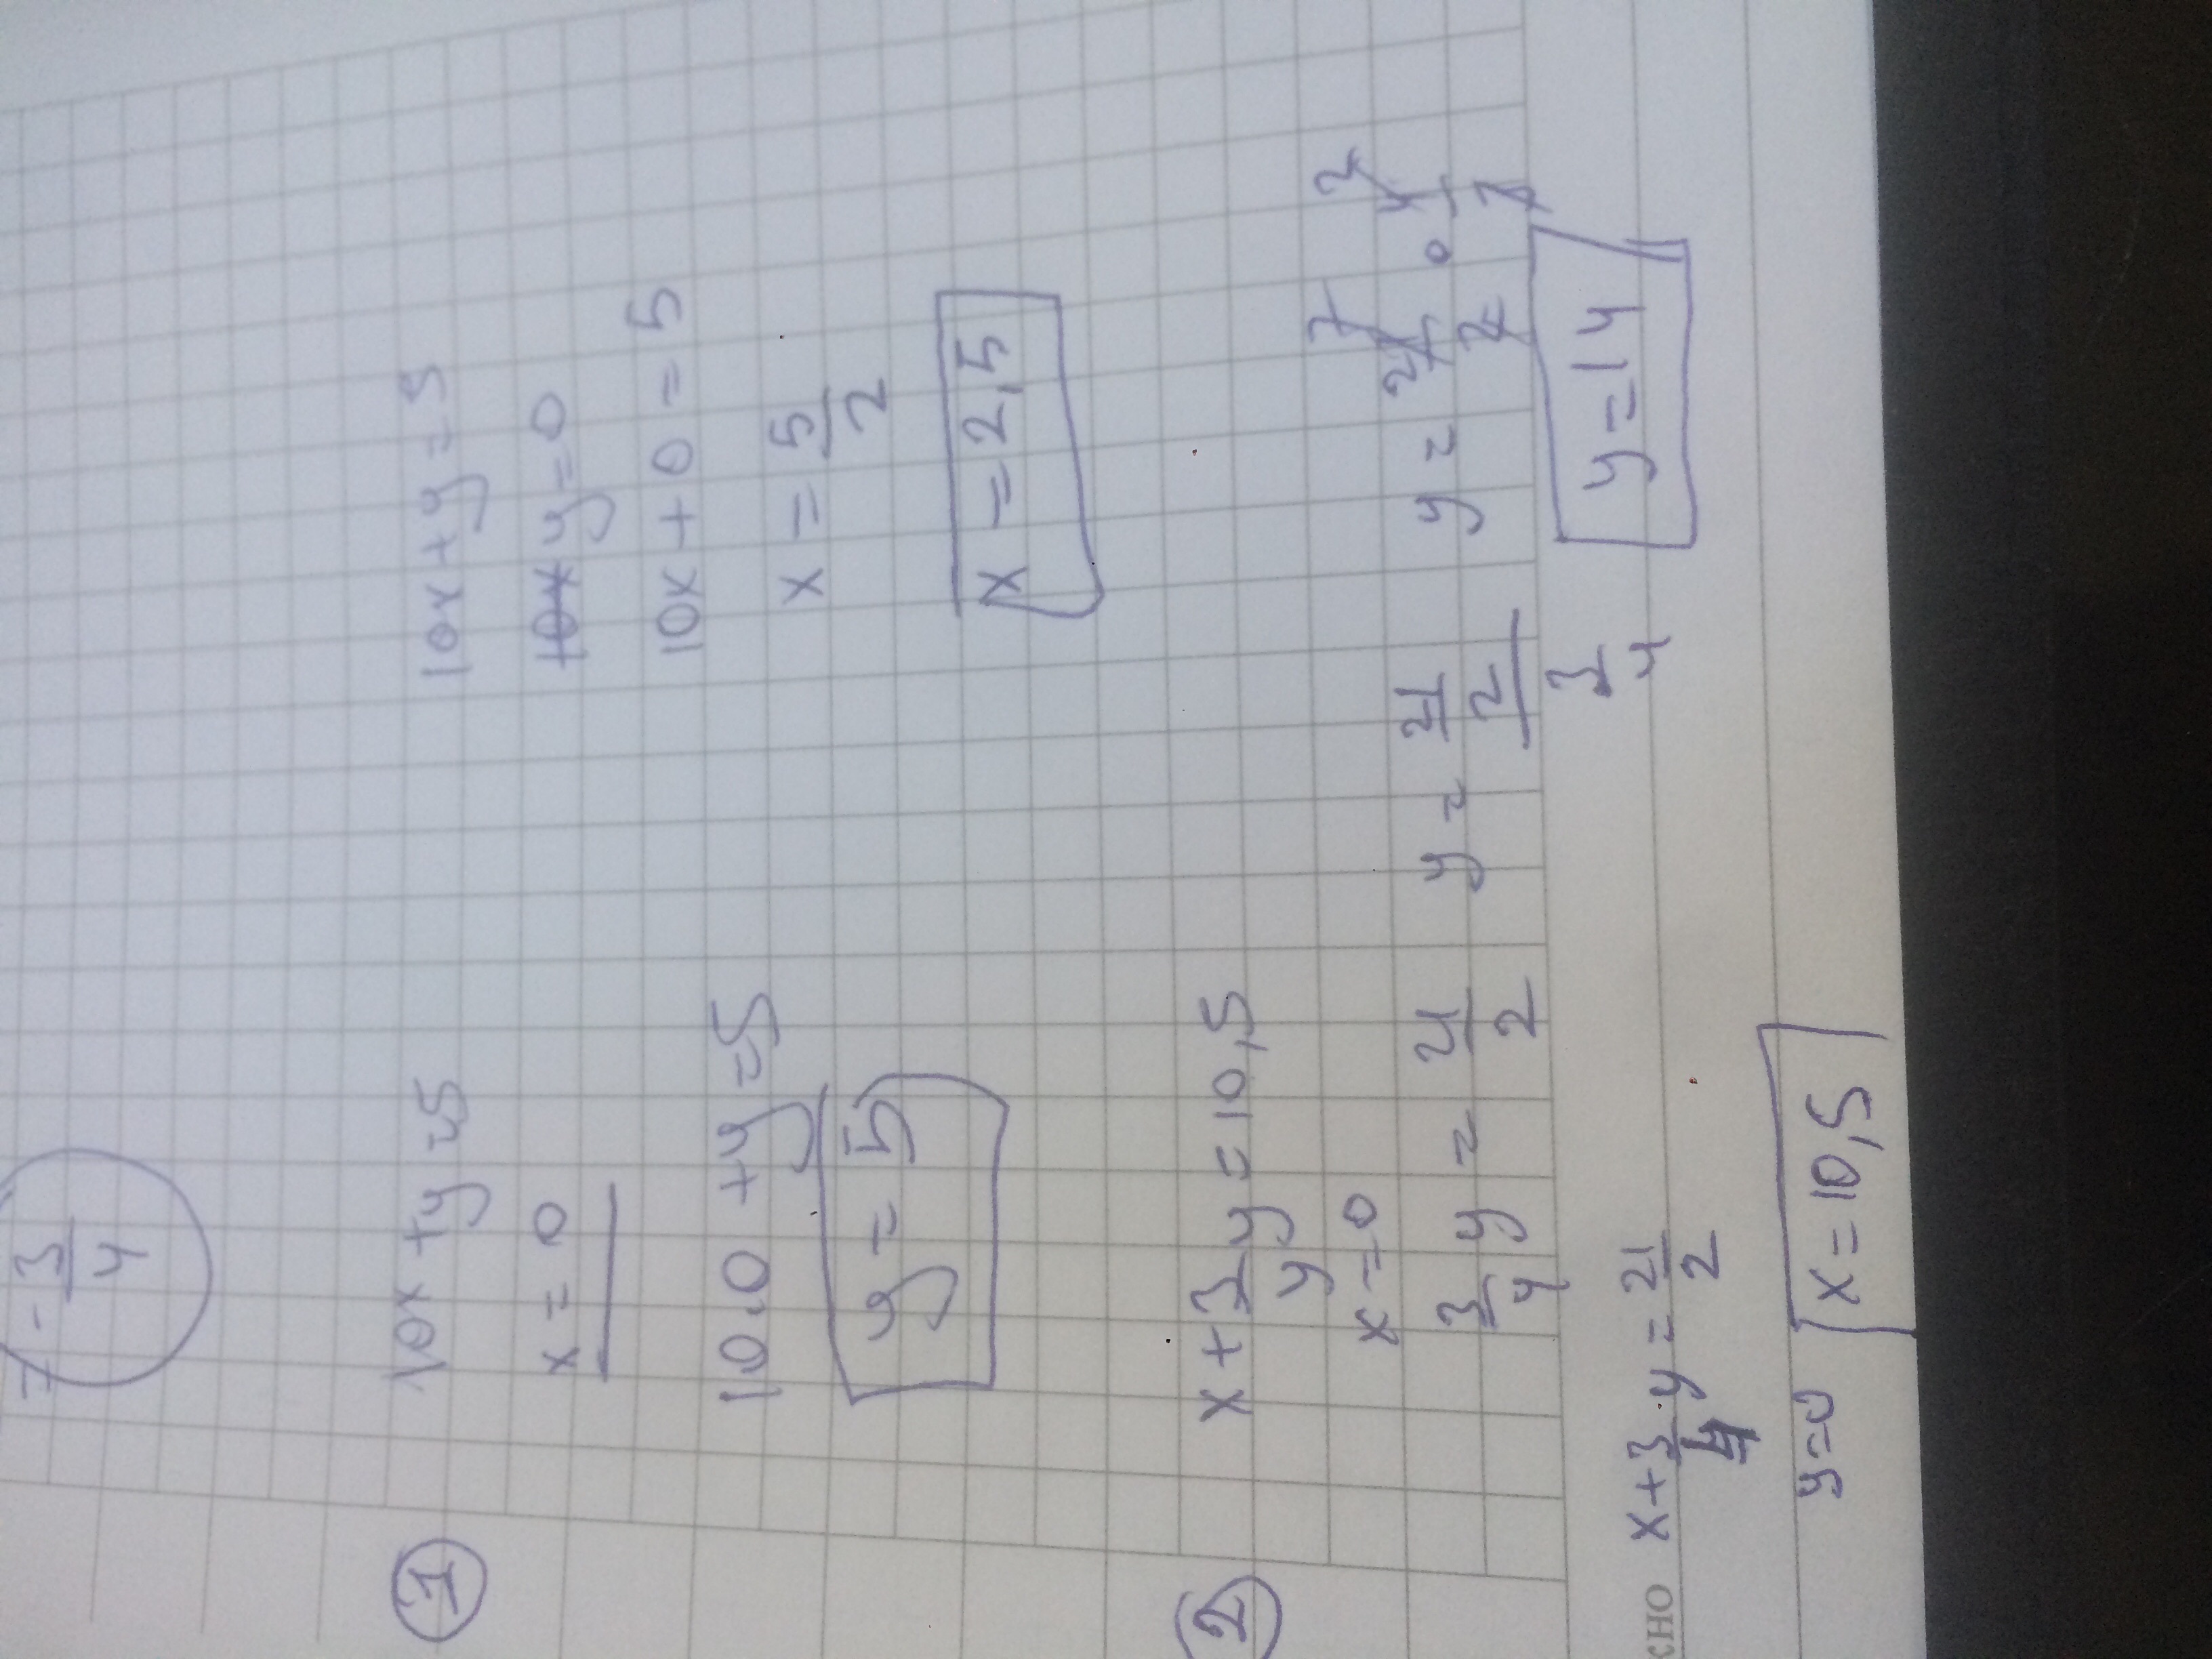 = - 3/4
① 10x + y = 5
x = 0
10·0 + y = 5
y = 5
10x + y = 5
y = 0
10x + 0 = 5
x = 5/2
x = 2,5
② x + 3/y y = 10,5
x = 0
3/4 y = 21/2
y = 21/2 / 3/4
y = 21/2 · 4/3
7 2
y = 14
жно x + 3/4 · y = 21/2
y = 0
x = 10,5